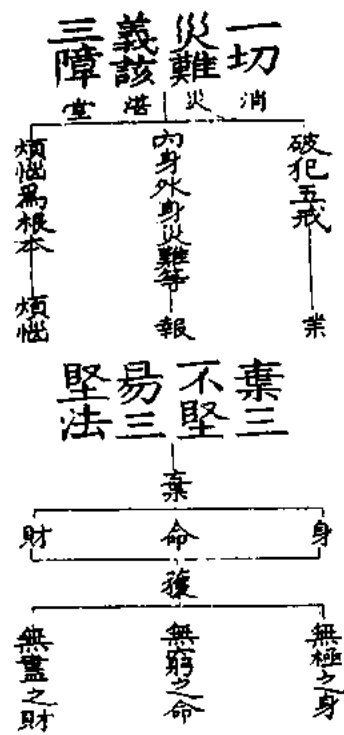 一切
災難
義該
三障
消災湛堂
破犯五戒
業
內身外身災難等
報
煩惱爲根本
煩惱
棄三
不堅
易三
堅法
棄
身
命
財
獲
無極之身
無窮之命
無盡之財